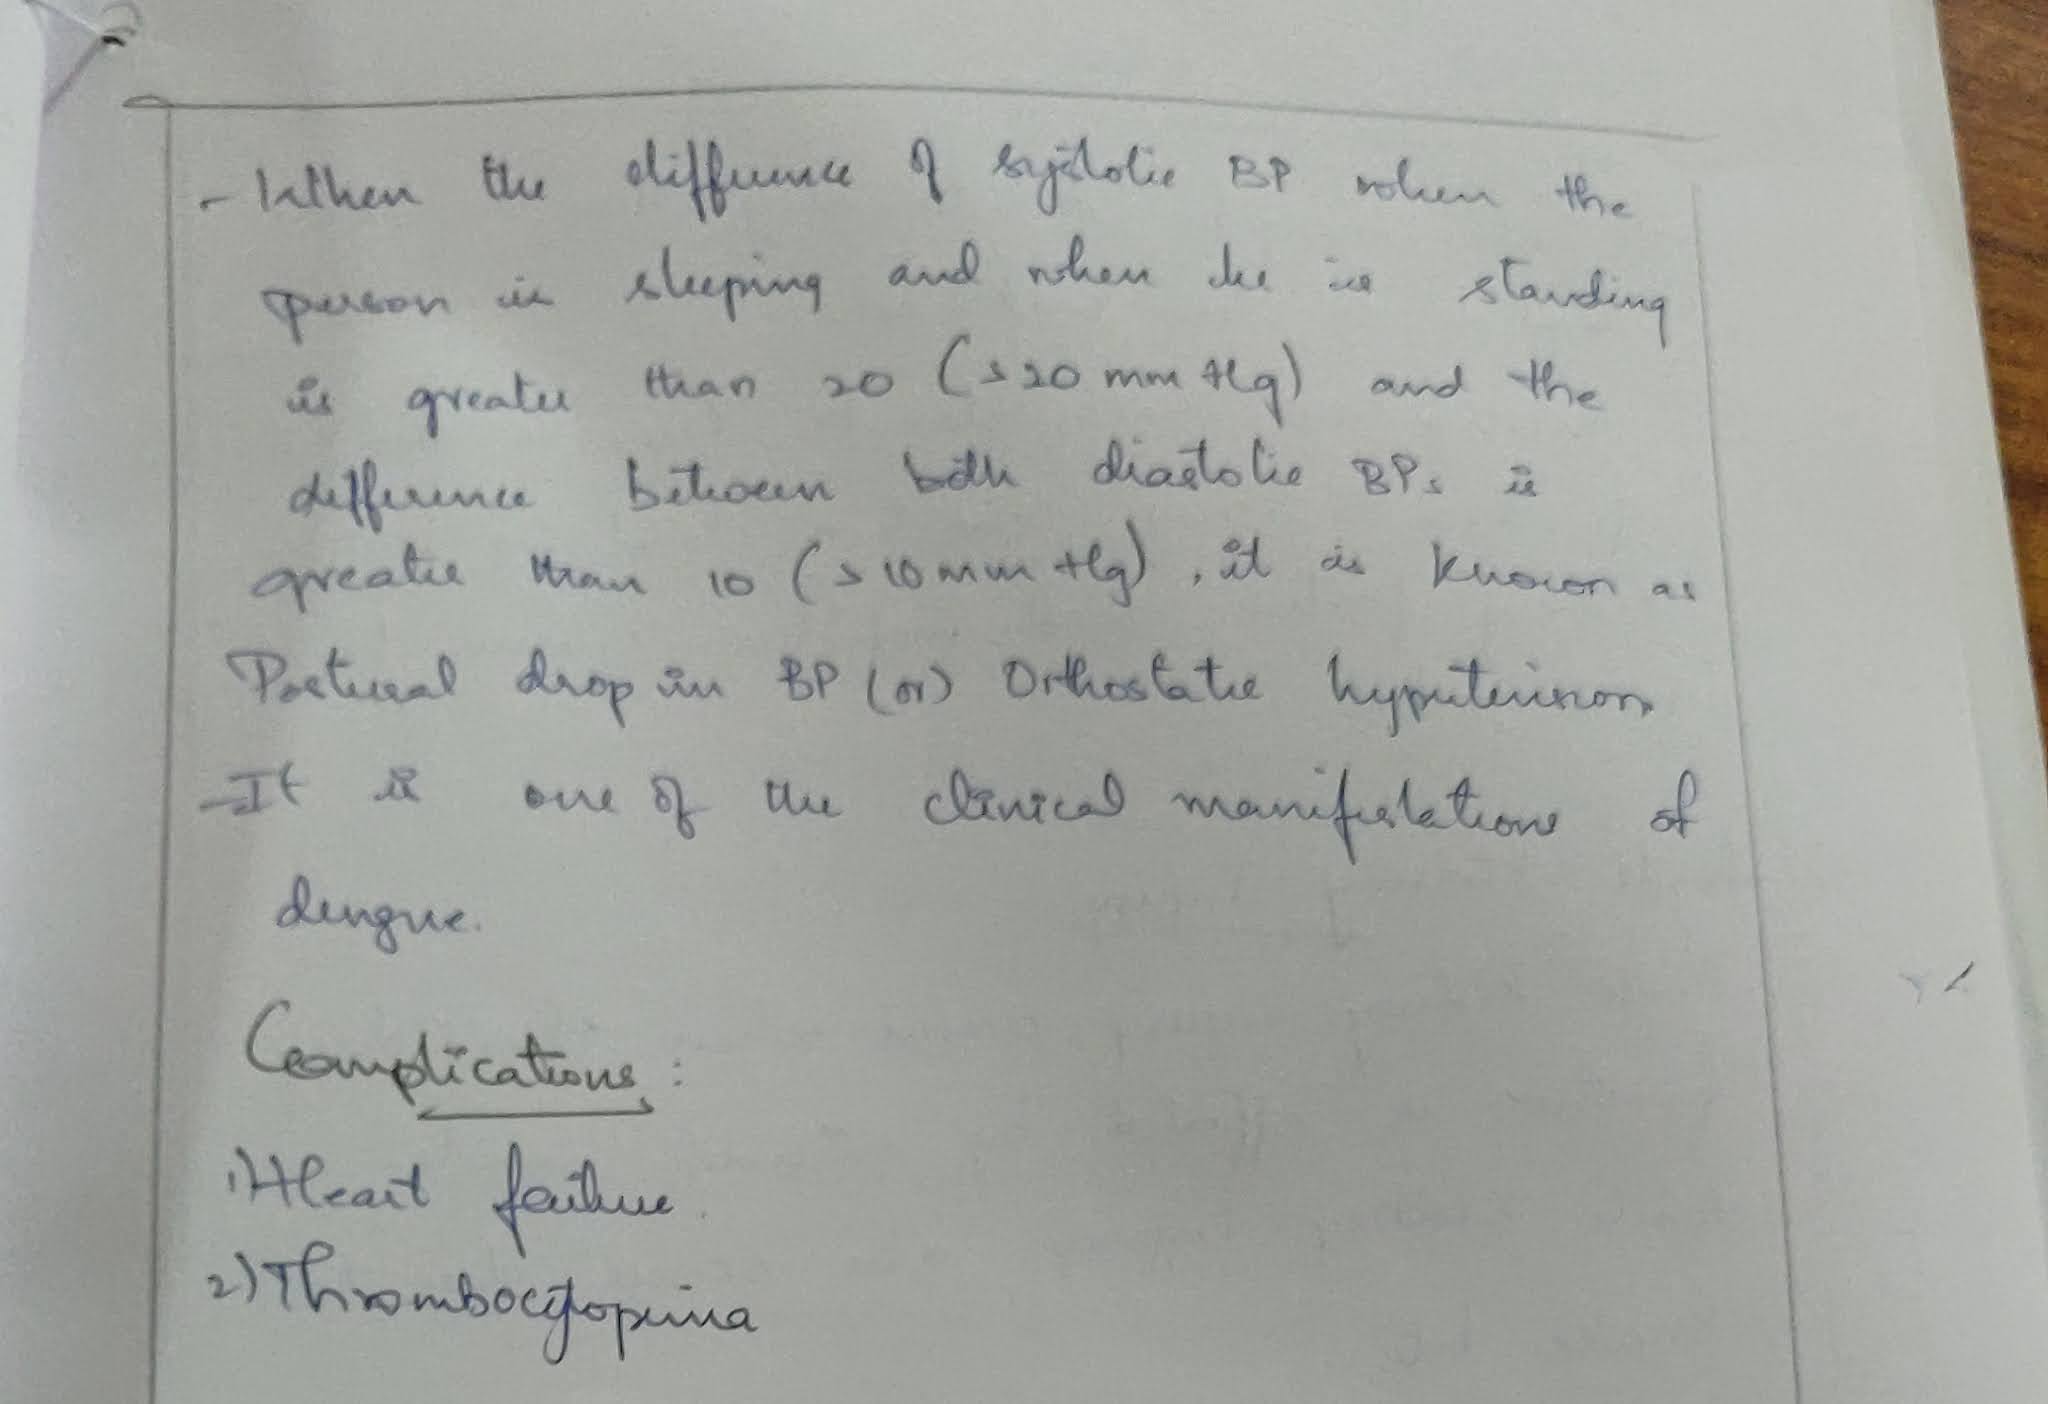 - When the difference of systolic BP when the
person is sleeping and when he is standing
is greater than 20 (>20 mm Hg) and the
difference between both diastolic BPs is
greater than 10 (>10 mm Hg), it is known as
Postural drop in BP (or) Orthostatic hypertension
- It is one of the clinical manifestations of
dengue.
Complications :
1) Heart failure.
2) Thrombocytopenia